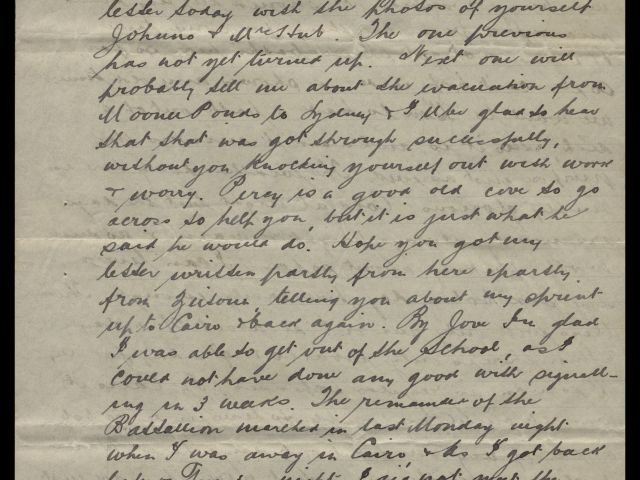 letter today with the photos of yourself
Johnno & Mrs Hub. The one previous
has not yet turned up. Next one will
probably tell me about the evacuation from
Moonee Ponds to Sydney & I'll be glad to hear
that that was got through successfully,
without you knocking yourself out with work
& worry. Percy is a good old cove to go
across to help you, but it is just what he
said he would do. Hope you got my
letter written partly from here & partly
from Zeitoun telling you about my sprint
up to Cairo & back again. By Jove I'm glad
I was able to get out of the School, as I
could not have done any good with signall-
ing in 3 weeks. The remainder of the
Battalion marched in last Monday night
when I was away in Cairo, & as I got back
night I did not meet the